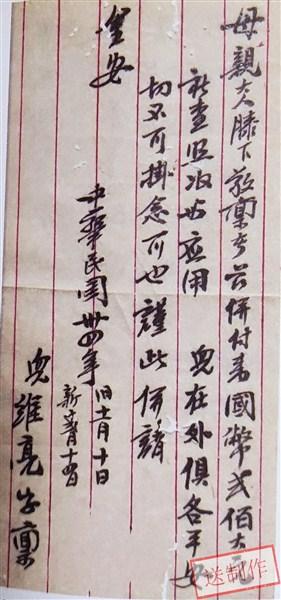 母親大人膝下敬稟者茲併付來國幣弍佰大元
祈查照收安应用 兒在外俱各平安
切不可掛念可也謹此併請
金安
中華民國卅四年
旧十一月十日
新十二月十四日
兒維亮安稟
送制作